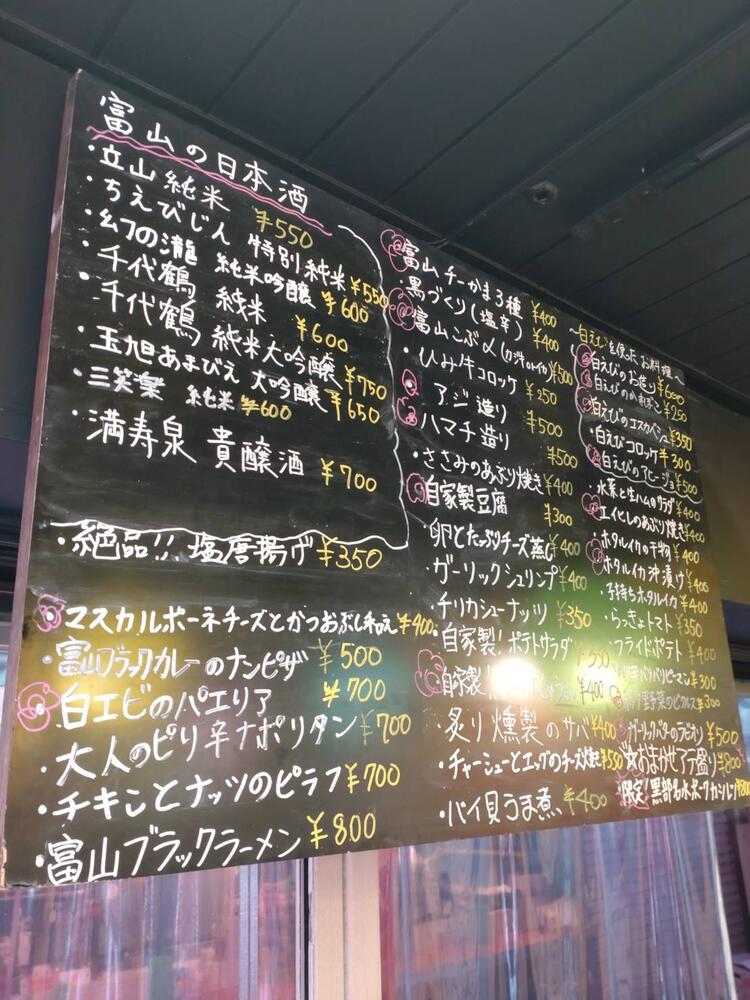 富山の日本酒
・立山 純米 ¥550
・ちえびじん 特別純米 ¥550
・幻の瀧 純米吟醸 ¥600
・千代鶴 純米 ¥600
・千代鶴 純米大吟醸 ¥750
・玉旭あまびえ 大吟醸 ¥650
・三笑楽 純米 ¥600
・満寿泉 貴醸酒 ¥700
・絶品!! 塩唐揚げ ¥350
・マスカルポーネチーズとかつおぶし和え ¥400
・富山ブラックカレーのナンピザ ¥500
・白エビのパエリア ¥700
・大人のピリ辛ナポリタン ¥700
・チキンとナッツのピラフ ¥700
・富山ブラックラーメン ¥800
・富山チーかま3種 ¥400
・黒づくり(塩辛) ¥400
・富山こぶ〆 ¥500
・ひみ牛コロッケ ¥250
・アジ造り ¥500
・ハマチ造り ¥500
・ささみのあぶり焼き ¥400
・自家製豆腐 ¥300
・卵とたっぷりチーズ蒸し ¥400
・ガーリックシュリンプ ¥400
・チリカシューナッツ ¥350
・自家製!ポテトサラダ
・自家製! ¥400
・炙り燻製のサバ ¥400
・チャーシューとエッグのチーズ焼き ¥550
・バイ貝うま煮 ¥400
〜白えびを使ったお料理〜
・白えびのお造り ¥600
・白えびのかまぼこ ¥250
・白えびの ¥350
・白えびコロッケ ¥300
・白えびのアヒージョ ¥500
・水菜と生ハムのサラダ ¥400
・エイヒレのあぶり焼き ¥400
・ホタルイカの干物 ¥400
・ホタルイカ沖漬け ¥400
・子持ちホタルイカ ¥400
・らっきょトマト ¥350
・フライドポテト ¥400
パリパリピーマン ¥300
野菜のピクルス ¥300
・ガーリックバターのラビオリ ¥500
☆おまかせアラ盛り ¥800
・限定!黒部名水ポーク